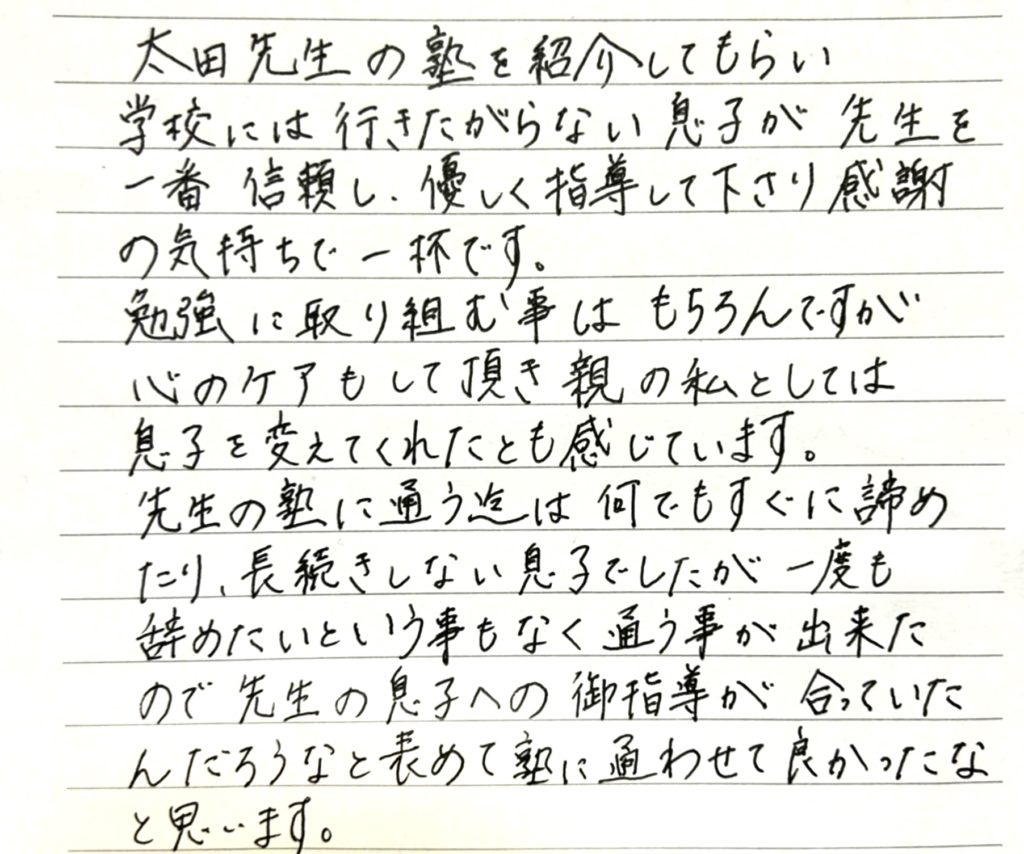 太田先生の塾を紹介してもらい
学校には行きたがらない息子が先生を
一番信頼し、優しく指導して下さり感謝
の気持ちで一杯です。
勉強に取り組む事はもちろんですが
心のケアもして頂き親の私としては
息子を変えてくれたとも感じています。
先生の塾に通う迄は何でもすぐに諦め
たり、長続きしない息子でしたが一度も
辞めたいという事もなく通う事が出来た
ので先生の息子への御指導が合っていた
んだろうなと表めて塾に通わせて良かったな
と思います。